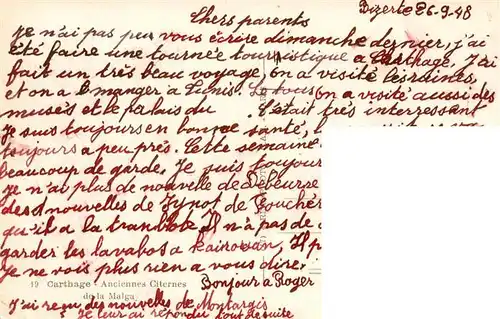 Bizerte 26.9.48
Chers parents
Je n'ai pas peu vous écrire dimanche dernier, j'ai
été faire une tournée touristique a Carthage. J'ai
fait un très beau voyage, on a visité les ruines,
et on a manger a Tunis. on a visité aussi des
musés et le palais du C'était très interressant
Je suis toujours en bonne santé,
toujours a peu près. Cette semaine
beaucoup de garde. Je suis toujour
Je n'ai plus de nouvelle de
des nouvelles de de
qu'il a la tranblote Il n'a pas de
garder les lavabos a Kairouan, Il
Je ne vois plus rien a vous dire.
19 Carthage - Anciennes Citernes
de la Malga
Bonjour a Roger
J'ai reçu des nouvelles de Montargis
Je leur ai répondu tout de suite